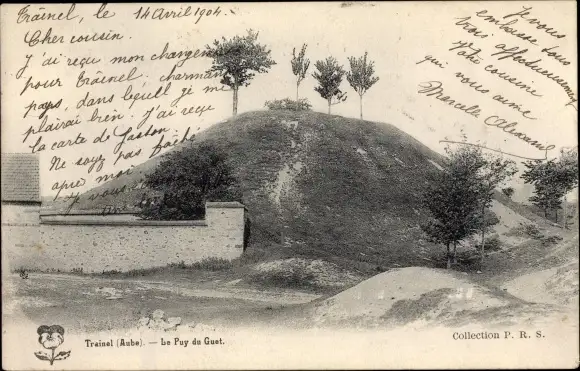 Traînel, le 14 Avril 1904.
Cher cousin.
J'ai reçu mon changement
pour Traînel, charmant
pays, dans lequel je me
plairai bien. J'ai reçu
la carte de Gaston
Ne soyez pas fâché
après moi
Je vous
embrasse tous
Votre cousine
qui vous aime
Marcelle
Trainel (Aube). - Le Puy du Guet.
Collection P. R. S.